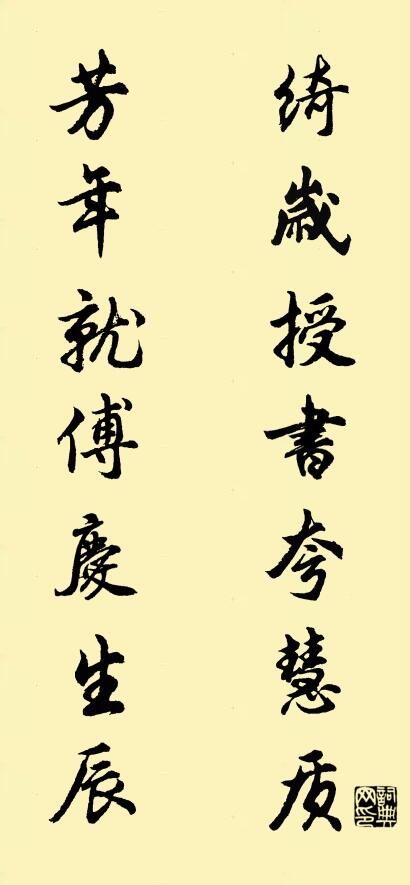 绮歲授書夸慧质
芳年就傅慶生辰
詞典网印